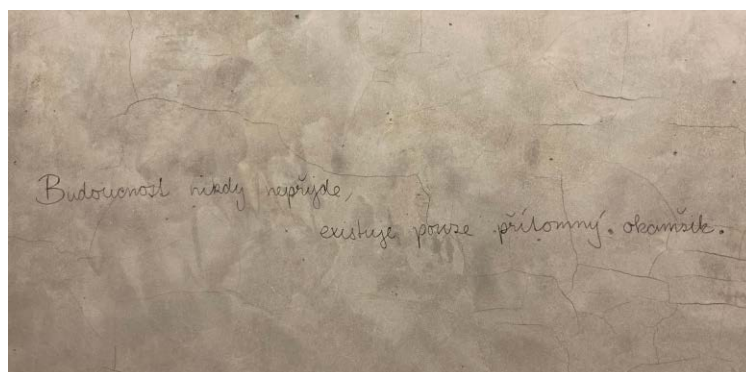 Budoucnost nikdy nepřijde,
existuje pouze přítomný. okamžik.